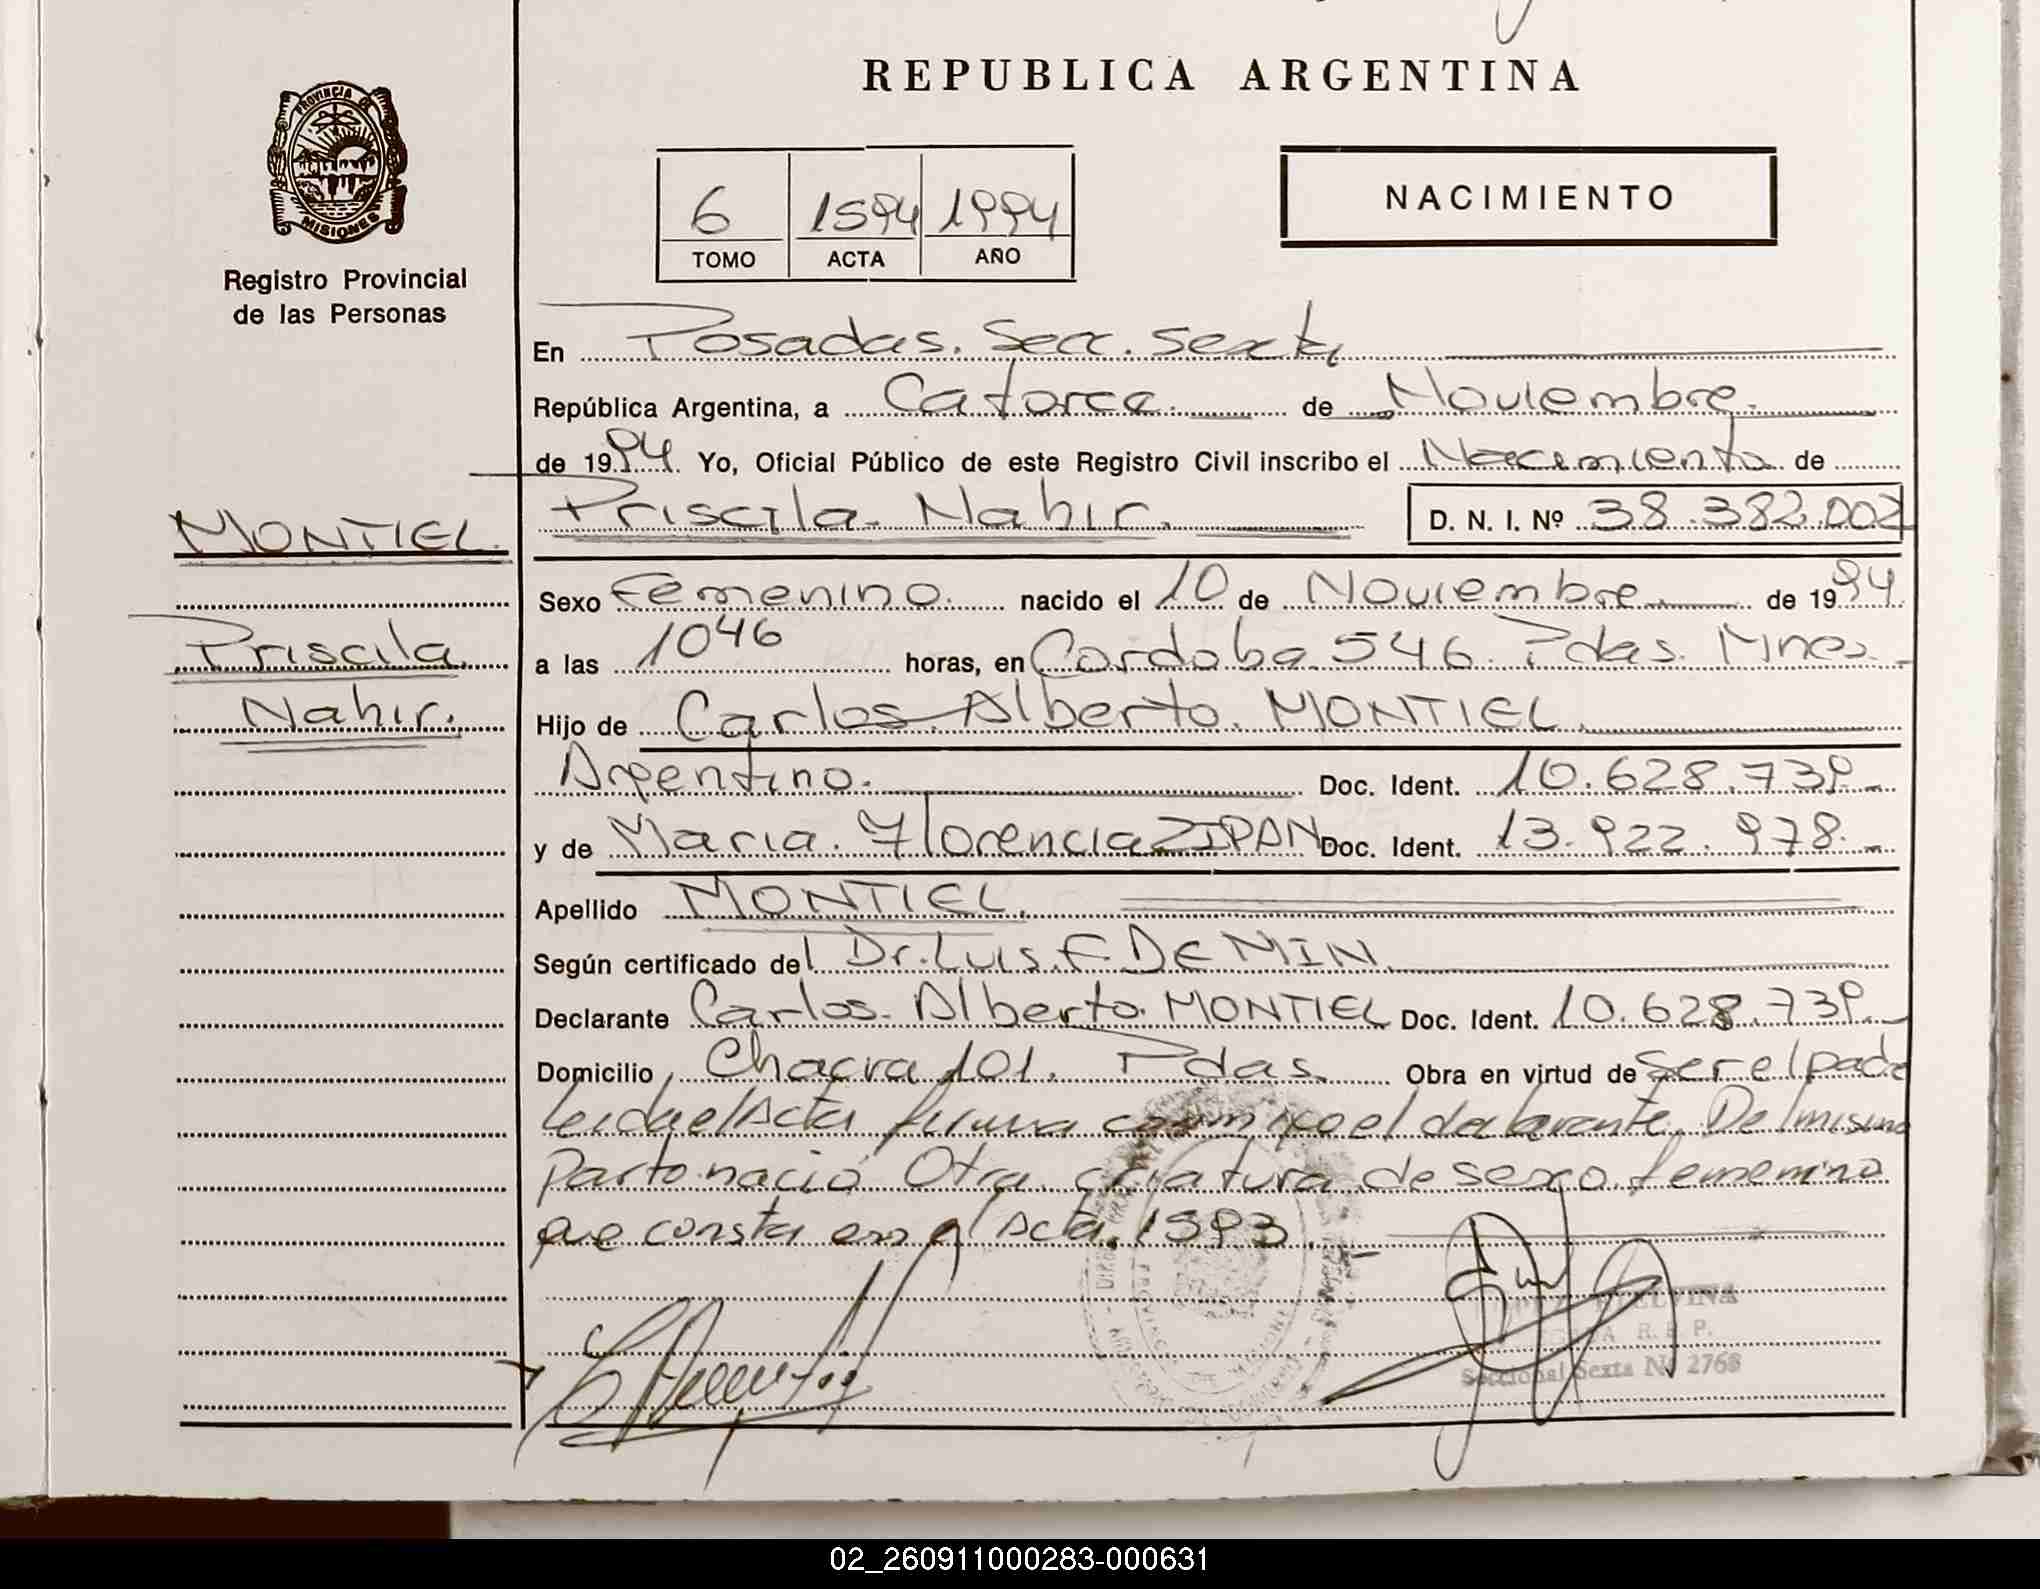 REPUBLICA ARGENTINA
PROVINCIA DE
MISIONES
Registro Provincial
de las Personas
6 1594 1994
TOMO ACTA AÑO
NACIMIENTO
En Posadas. Secc. sexta
República Argentina, a Catorce de Noviembre
de 1994 Yo, Oficial Público de este Registro Civil inscribo el Nacimiento de
MONTIEL Priscila Nahir. D. N. I. Nº 38.382.002
Sexo Femenino. nacido el 10 de Noviembre de 1994
Priscila
a las 1046 horas, en Cordoba 546. Pdas. Mnes.
Nahir.
Hijo de Carlos Alberto. MONTIEL.
Argentino. Doc. Ident. 10.628.739.
y de Maria. Florencia ZIPAN Doc. Ident. 13.922.978.
Apellido MONTIEL.
Según certificado del Dr. Luis F. DE MIN.
Declarante Carlos Alberto MONTIEL Doc. Ident. 10.628.739.
Domicilio Chacra 101. Pdas. Obra en virtud de ser el padre
leida el Acta firma conmigo el declarante. Del mismo
Parto nació Otra criatura de sexo femenino
que consta en el Acta. 1593.
R. P.
Seccional Sexta Nº 2768
02_260911000283-000631